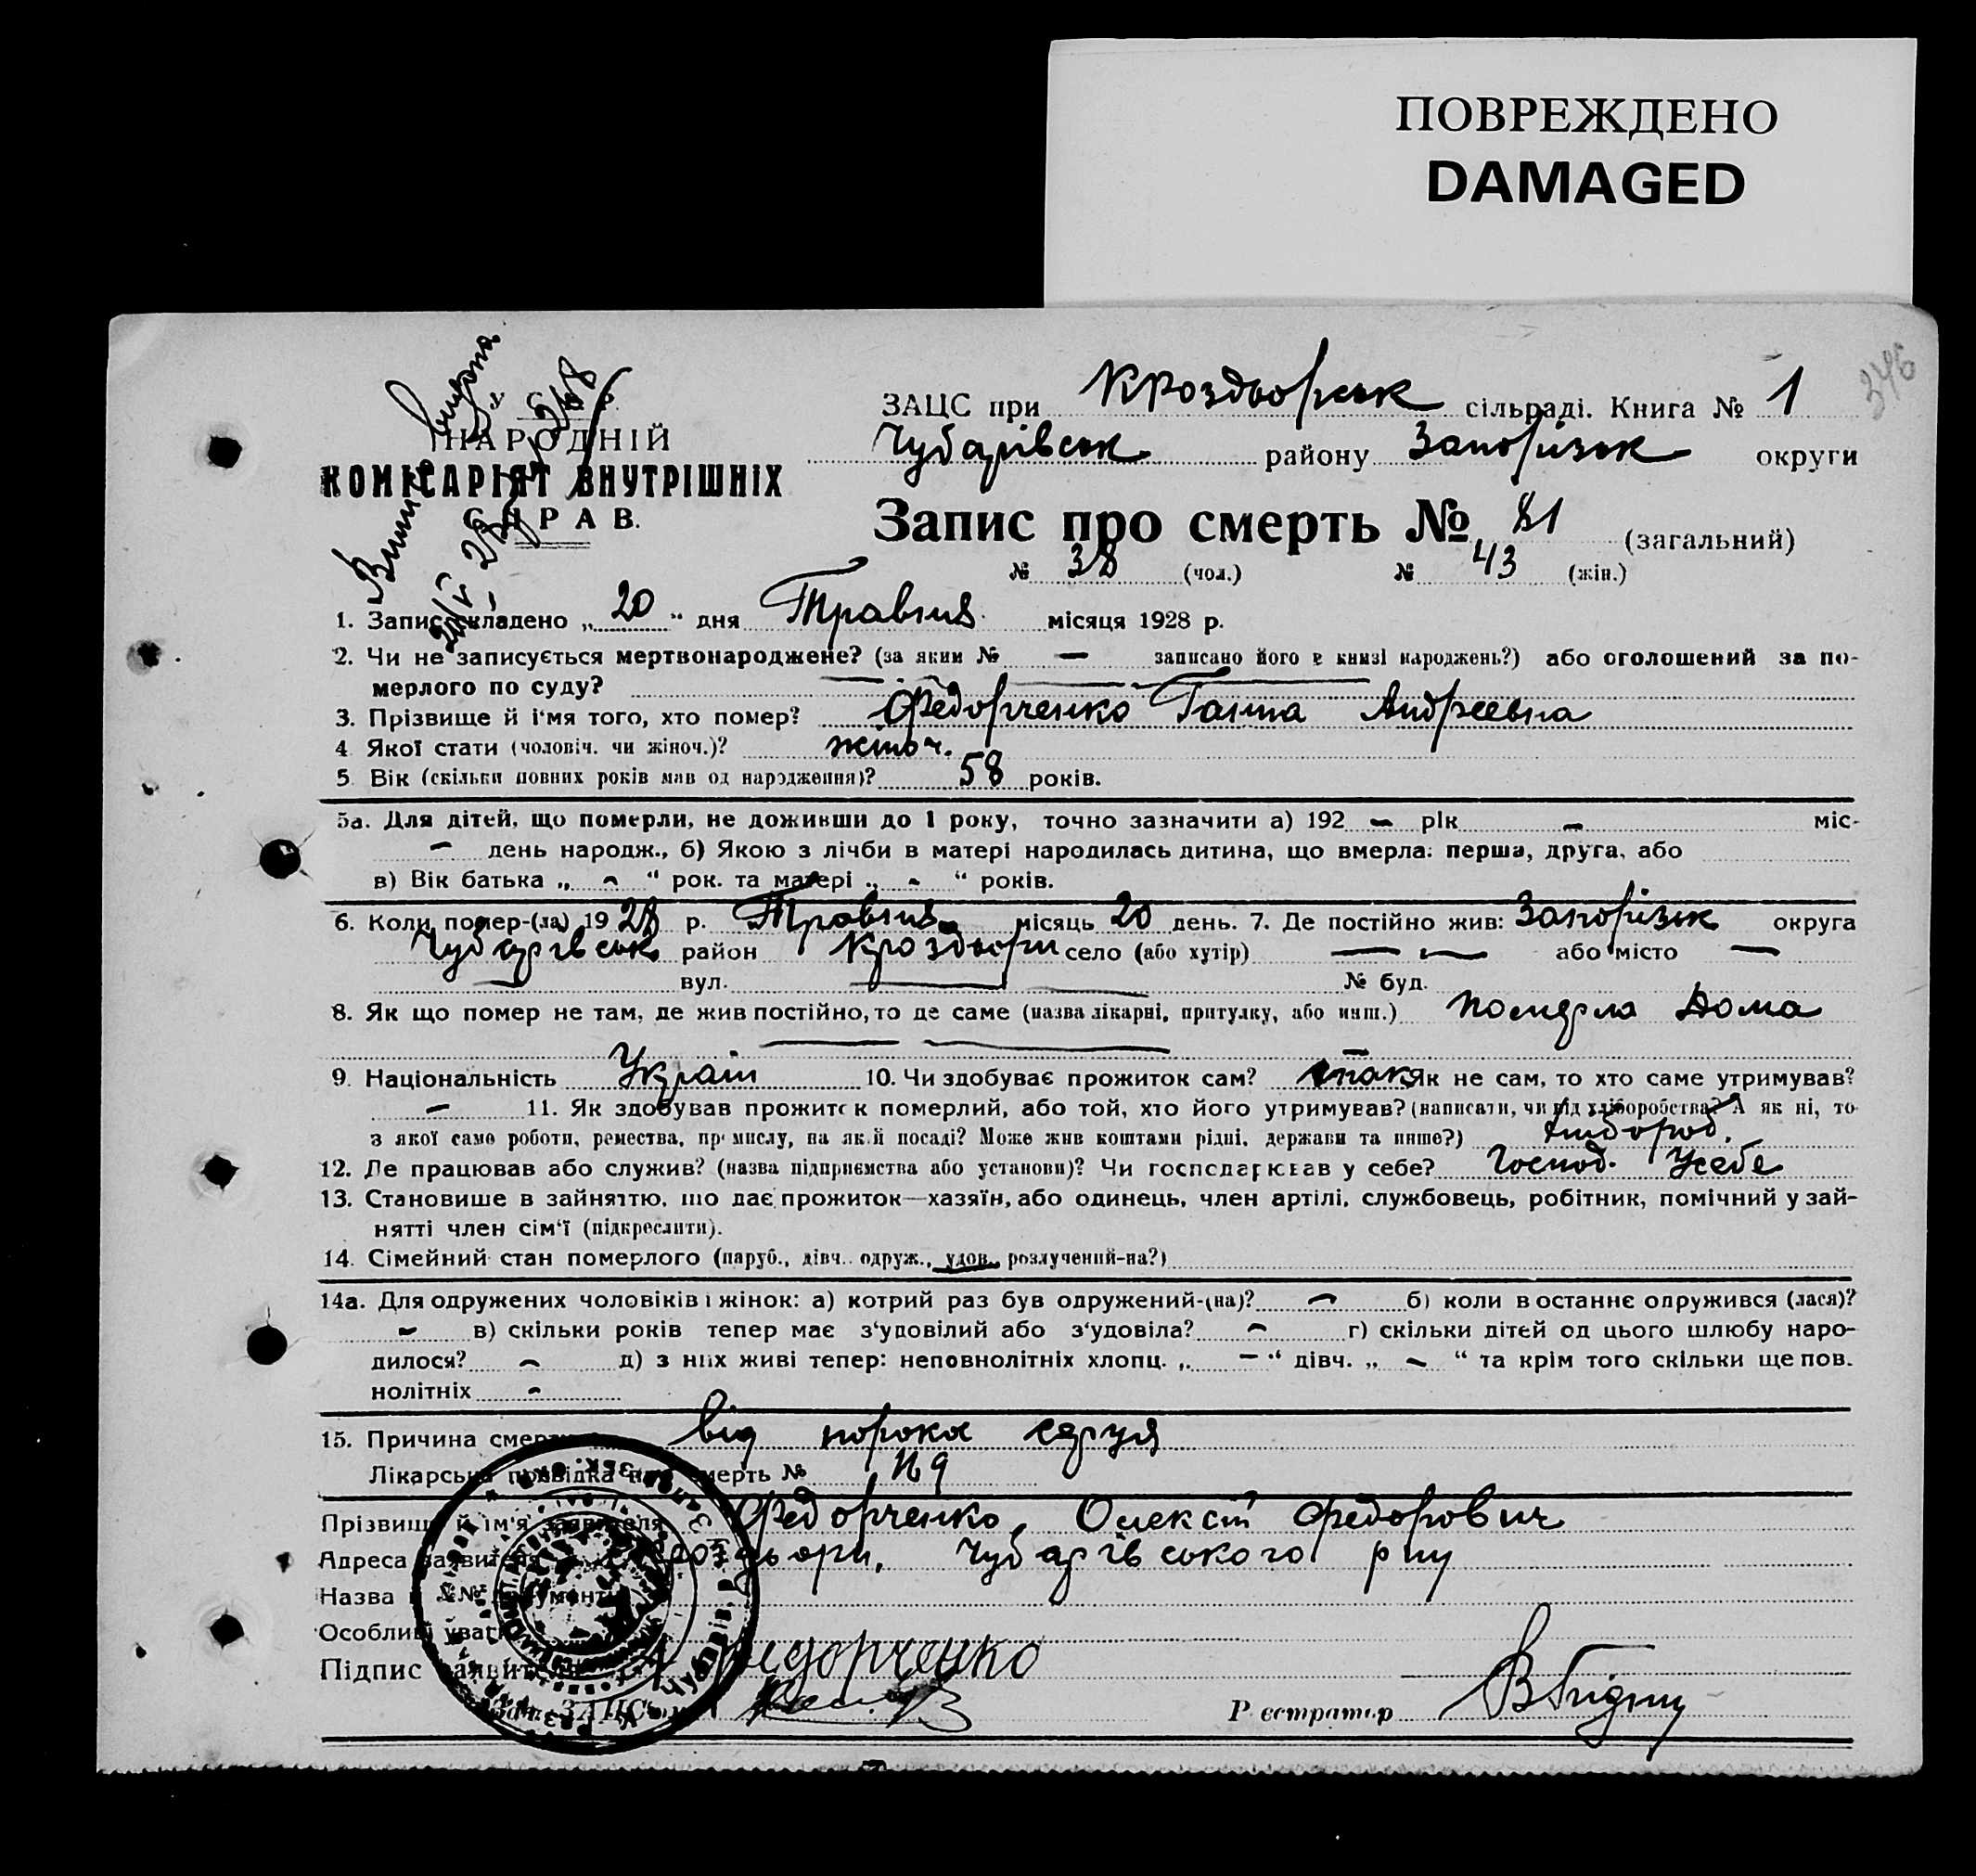 ПОВРЕЖДЕНО
DAMAGED
346
У С Р Р.
НАРОДНІЙ
КОМІСАРІЯТ ВНУТРІШНІХ
СПРАВ.
ЗАЦС при Кроздворськ сільраді. Книга № 1
Чубарівськ району Запорізьк округи
Запис про смерть № 81 (загальний)
№ 38 (чол.) № 43 (жін.)
1. Запис складено „ 20 “ дня Травня місяця 1928 р.
2. Чи не записується мертвонароджене? (за яким № — записано його в книзі народжень?) або оголошений за по-
мерлого по суду?
3. Прізвище й і‘мя того, хто помер? Федорченко Ганна Андреевна
4 Якої стати (чоловіч. чи жіноч.)? жіноч.
5. Вік (скільки повних років мав од народження)? 58 років.
5а. Для дітей, що померли, не доживши до 1 року, точно зазначити а) 192 — рік — міс-
— день народж., б) Якою з лічби в матері народилась дитина, що вмерла: перша, друга, або
в) Вік батька „ - “ рок. та матері „ - “ років.
6. Коли помер-(ла) 19 28 р. Травня місяць 20 день. 7. Де постійно жив: Запорізьк округа
Чубарівськ район Кроздвори село (або хутір) — — або місто —
— вул. — № буд.
8. Як що помер не там, де жив постійно, то де саме (назва лікарні, притулку, або инш.) Померла Дома
9. Національність Україн 10. Чи здобуває прожиток сам? так Як не сам, то хто саме утримував?
— 11. Як здобував прожиток померлий, або той, хто його утримував? (написати, чи від хліборобства? А як ні, то
з якої само роботи, ремества, промислу, на якій посаді? Може жив коштами рідні, держави та инше?)
12. Де працював або служив? (назва підприємства або установи)? Чи господарював у себе? Господ. Усебе
13. Становище в зайняттю, що дає прожиток—хазяїн, або одинець, член артілі, службовець, робітник, помічний у зай-
нятті член сім‘ї (підкреслити).
14. Сімейний стан померлого (паруб., дівч. одруж., удов., розлучений-на?)
14а. Для одружених чоловіків і жінок: а) котрий раз був одружений-(на)? — б) коли в останнє одружився (лася)?
— в) скільки років тепер має з‘удовілий або з‘удовіла? - г) скільки дітей од цього шлюбу наро-
дилося? - д) з них живі тепер: неповнолітніх хлопц. „ — “ дівч. „ - “ та крім того скільки ще пов.
нолітніх -
15. Причина смерти від порока серця
Лікарська посвідка про смерть № № 9
Прізвище й ім‘я заявителя Федорченко, Олексій Федорович
Адреса заявителя Кроздвори, Чубарівського р-ну
Назва й №№ документів
Особливі уваги
Підпис заявителя Федорченко
Зав. ЗАЦС‘ом Реєстратор